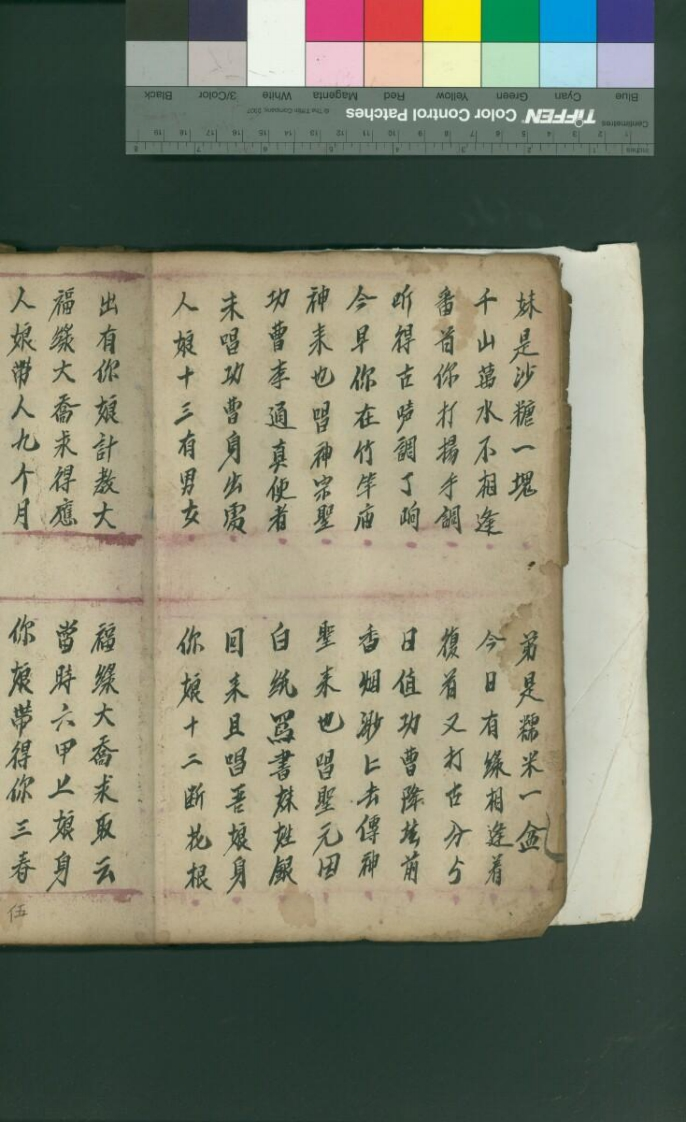 妹是沙糖一塊
弟是糯米一盆
千山萬水不相逢
今日有緣相逢着
番首你打揚手調
復首又打古分兮
听得古唠調了㕯
日值功曹降坛前
今早你在竹竿庙
香烟渺匕去傳神
神来也唱神宗聖
聖来也唱聖元因
功曹李通真便者
白紙冩書妹姓銀
未唱功曹身出處
回来且唱吾娘身
人娘十三有男女
你娘十二断花根
出有你娘計教大
福緣大喬求取云
福緣大喬求得應
當時六甲上娘身
人娘帶人九个月
你娘帶得你三春
伍
Blue Cyan Green Yellow Red Magenta White 3/Color Black
TIFFEN Color Control Patches
© The Tiffen Company, 2007
Centimetres
Inches